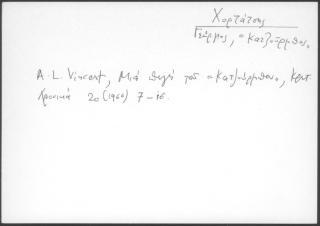 Χορτάτσης
Γεώργιος, "Κατζούρμπος"
A. L. Vincent, Μιά πηγή τοῦ "Κατζούρμπου", Κρητ.
Χρονικά 20 (1966) 7-16.